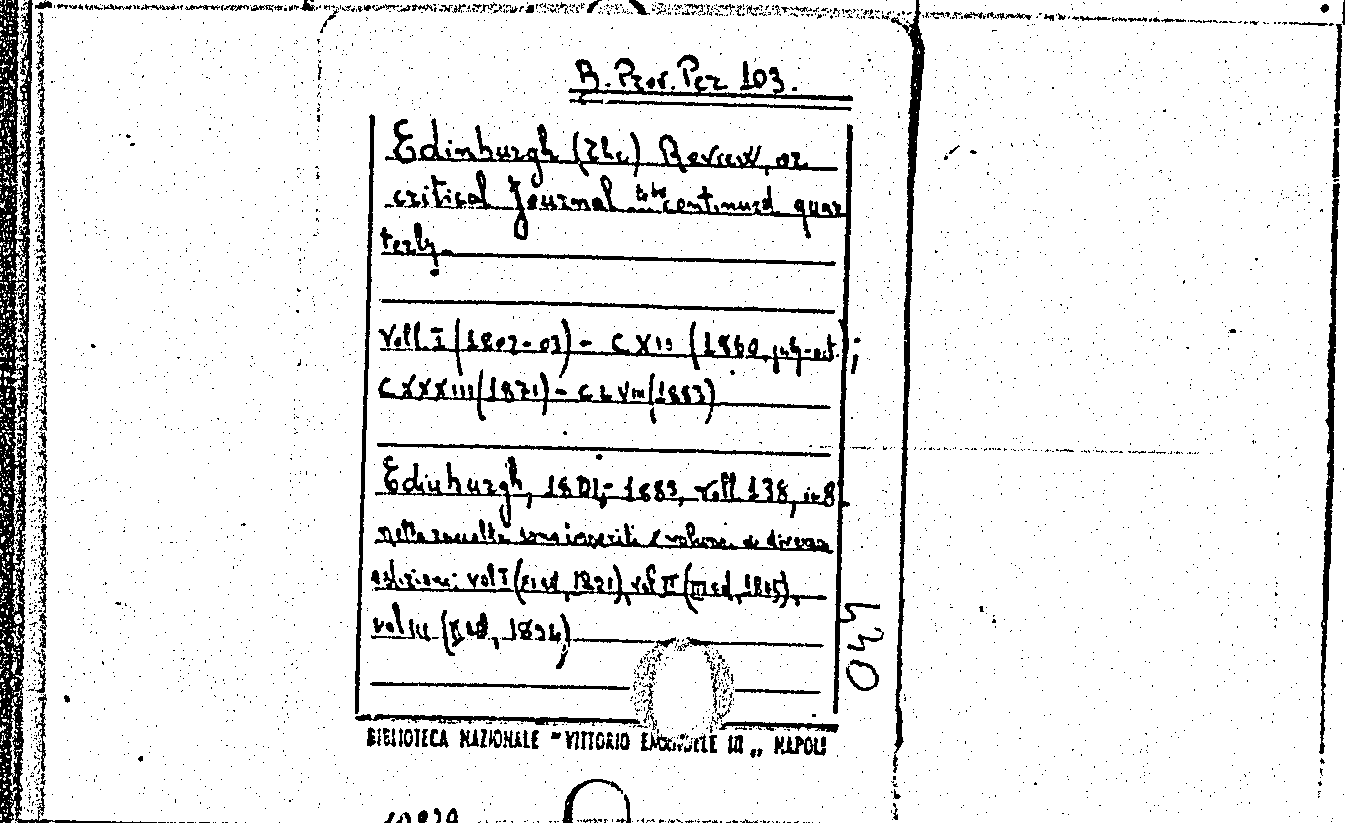 B. Prov. Per 103.
Edinburgh (The) Review, or
critical Journal to be continued quar
terly
Voll. I (1802-03) - CXII (1860, july-oct.);
CXXXIII (1871) - CLVIII (1883)
Edinburgh, 1802-1883, voll. 138, in 8
nella raccolta sono inseriti volumi di diversa
edizione: vol I ( ed, 1821), vol II (III ed, 1805),
vol III ( ed, 1824)
047
BIBLIOTECA NAZIONALE "VITTORIO EMANUELE III" NAPOLI